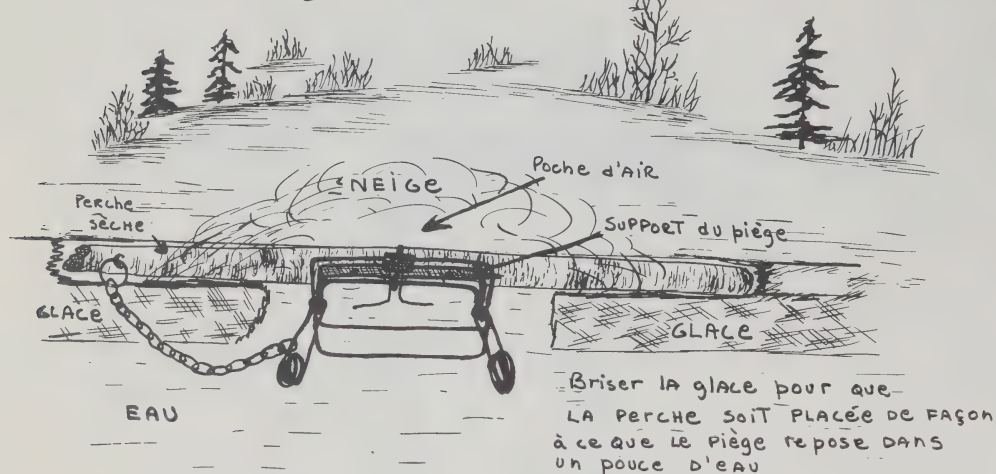 Poche d'AIR
NEIGE
Perche
sèche
Support du piège
GLACE
GLACE
EAU
Briser la glace pour que
la perche soit placée de façon
à ce que le piège repose dans
un pouce d'eau